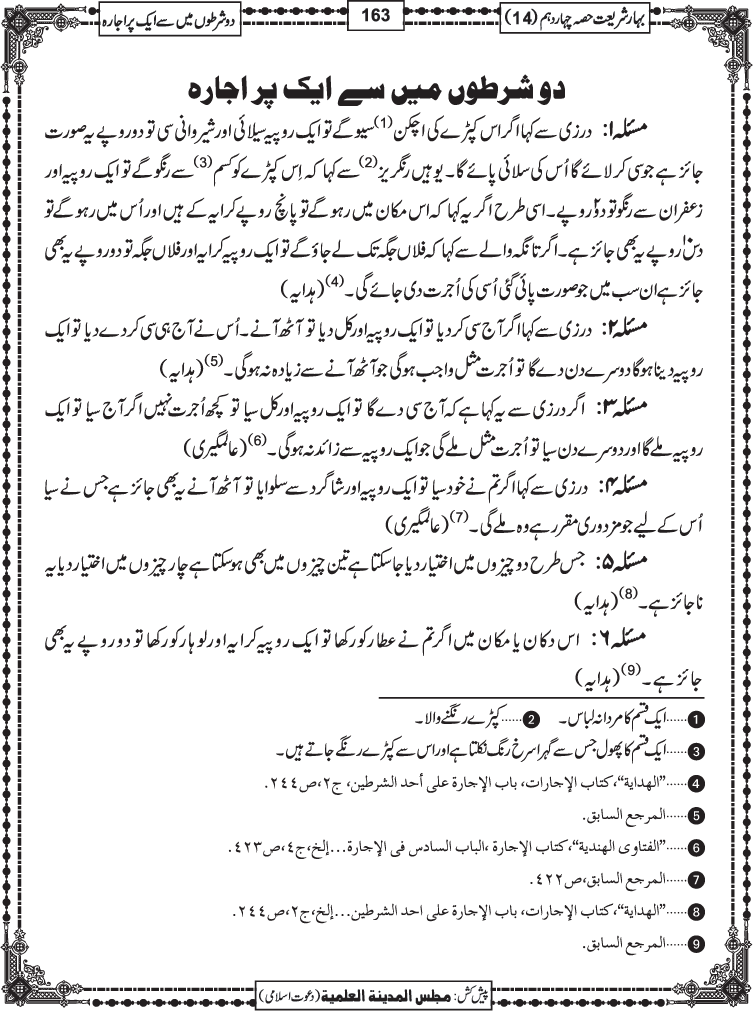 بہارشریعت حصہ چہاردہم (14)
163
دو شرطوں میں سے ایک پر اجارہ
دو شرطوں میں سے ایک پر اجارہ
مسئلہ ۱: درزی سے کہا اگر اس کپڑے کی اچکن (1) سیو گے تو ایک روپیہ سیلائی اور شیروانی سی تو دو روپے یہ صورت
جائز ہے جو سی کر لائے گا اُس کی سلائی پائے گا۔ یوہیں رنگریز (2) سے کہا کہ اِس کپڑے کو کسم (3) سے رنگو گے تو ایک روپیہ اور
زعفران سے رنگو تو دو۲ روپے۔ اسی طرح اگر یہ کہا کہ اس مکان میں رہو گے تو پانچ روپے کرایہ کے ہیں اور اُس میں رہو گے تو
دس۱۰ روپے یہ بھی جائز ہے۔ اگر تانگہ والے سے کہا کہ فلاں جگہ تک لے جاؤ گے تو ایک روپیہ کرایہ اور فلاں جگہ تو دو روپے یہ بھی
جائز ہے ان سب میں جو صورت پائی گئی اُسی کی اُجرت دی جائے گی۔ (4) (ہدایہ)
مسئلہ ۲: درزی سے کہا اگر آج سی کر دیا تو ایک روپیہ اور کل دیا تو آٹھ آنے۔ اُس نے آج ہی سی کر دے دیا تو ایک
روپیہ دینا ہو گا دوسرے دن دے گا تو اُجرت مثل واجب ہو گی جو آٹھ آنے سے زیادہ نہ ہو گی۔ (5) (ہدایہ)
مسئلہ ۳: اگر درزی سے یہ کہا ہے کہ آج سی دے گا تو ایک روپیہ اور کل سیا تو کچھ اُجرت نہیں اگر آج سیا تو ایک
روپیہ ملے گا اور دوسرے دن سیا تو اُجرت مثل ملے گی جو ایک روپیہ سے زائد نہ ہو گی۔ (6) (عالمگیری)
مسئلہ ۴: درزی سے کہا اگر تم نے خود سیا تو ایک روپیہ اور شاگرد سے سلوایا تو آٹھ آنے یہ بھی جائز ہے جس نے سیا
اُس کے لیے جو مزدوری مقرر ہے وہ ملے گی۔ (7) (عالمگیری)
مسئلہ ۵: جس طرح دو چیزوں میں اختیار دیا جا سکتا ہے تین چیزوں میں بھی ہو سکتا ہے چار چیزوں میں اختیار دیا یہ
ناجائز ہے۔ (8) (ہدایہ)
مسئلہ ۶: اس دکان یا مکان میں اگر تم نے عطار کو رکھا تو ایک روپیہ کرایہ اور لوہار کو رکھا تو دو روپے یہ بھی
جائز ہے۔ (9) (ہدایہ)
1 ......ایک قسم کا مردانہ لباس۔ 2 ......کپڑے رنگنے والا۔
3 ......ایک قسم کا پھول جس سے گہرا سرخ رنگ نکلتا ہے اور اس سے کپڑے رنگے جاتے ہیں۔
4 ......”الهداية“، كتاب الإجارات، باب الإجارة على أحد الشرطين، ج٢، ص٢٤٤.
5 ......المرجع السابق.
6 ......”الفتاوى الهندية“، كتاب الإجارة، الباب السادس في الإجارة...إلخ، ج٤، ص٤٢٣.
7 ......المرجع السابق، ص٤٢٢.
8 ......”الهداية“، كتاب الإجارات، باب الإجارة على احد الشرطين...إلخ، ج٢، ص٢٤٤.
9 ......المرجع السابق.
پیش کش: مجلس المدينة العلمية (دعوت اسلامی)